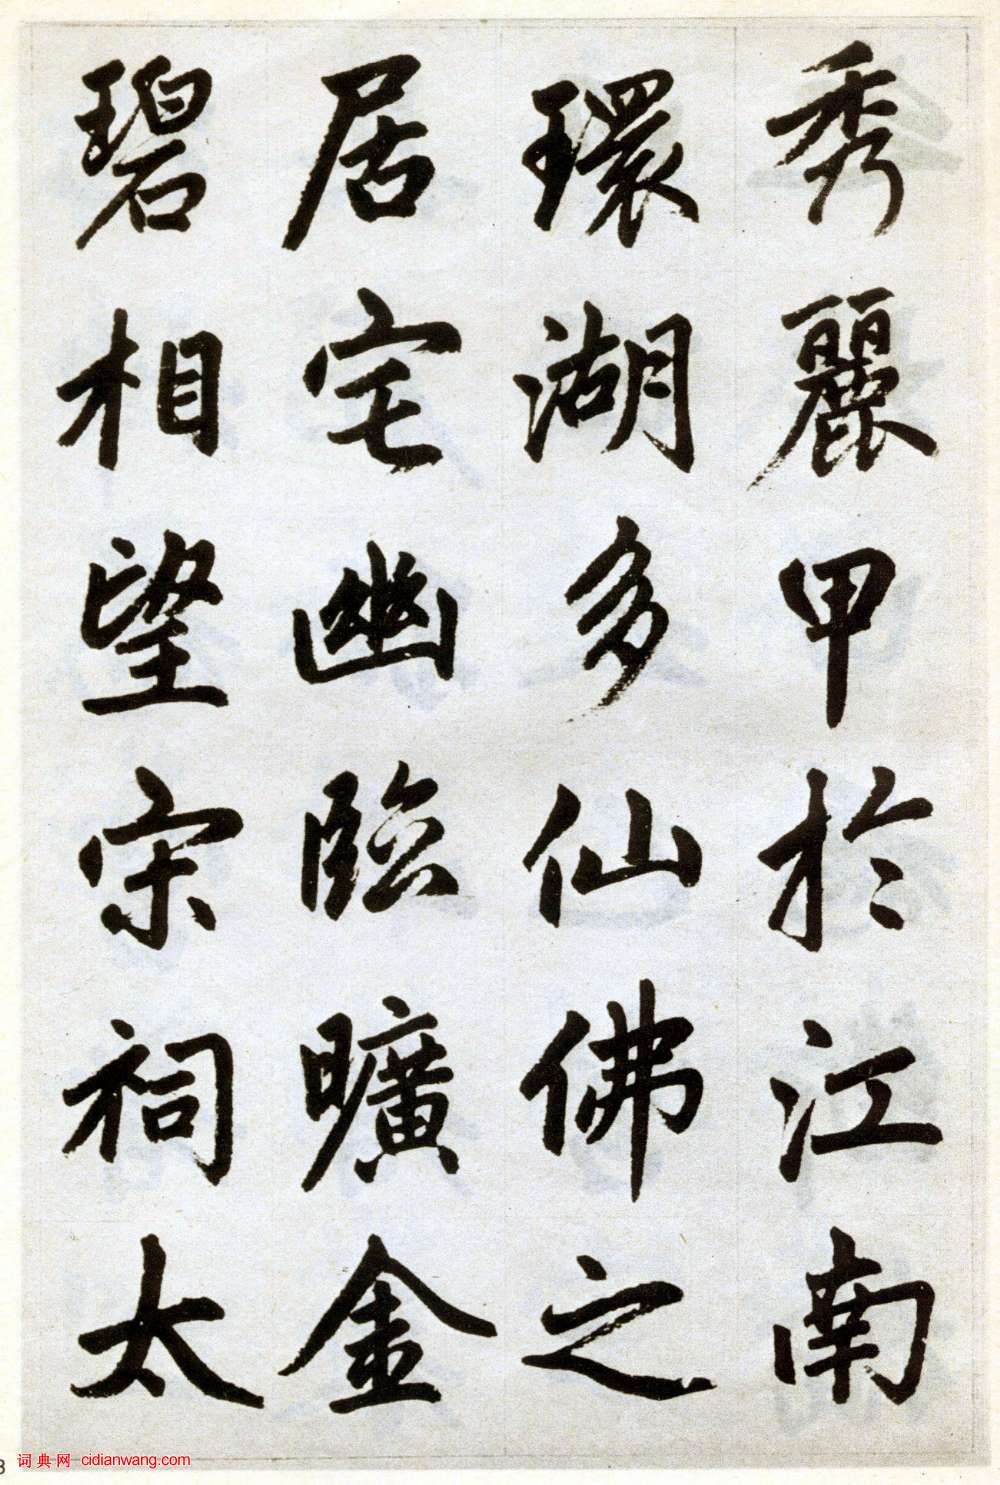 秀麗甲於江南
環湖多仙佛之
居宅幽臨曠金
碧相望宋祠太
8
词典网 cidianwang.com